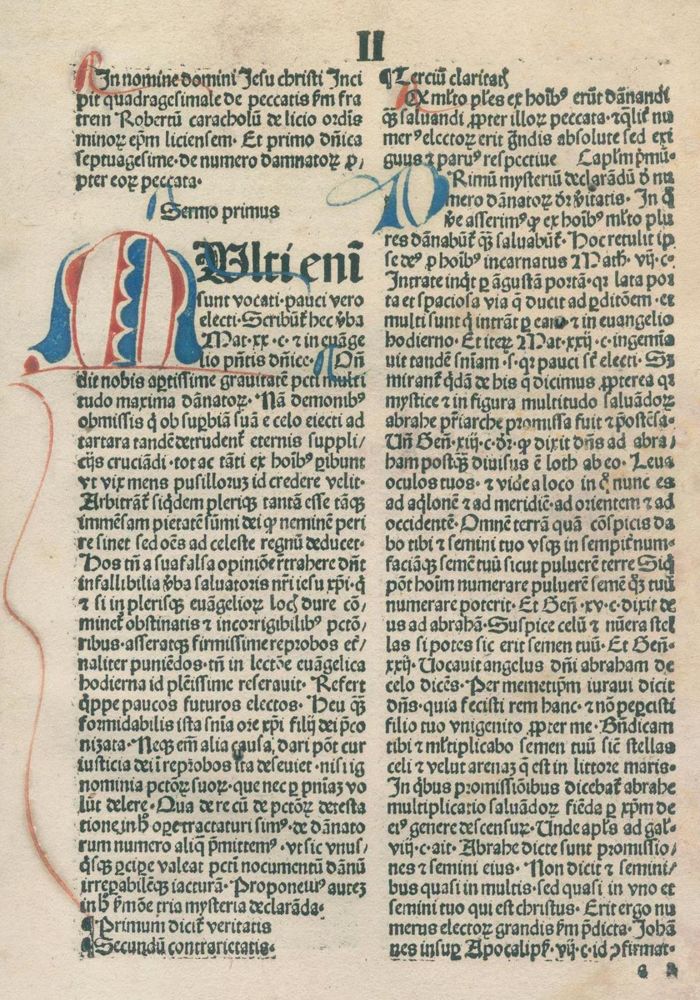 II
In nomine domini Jesu christi Inci
pit quadragesimale de peccatis ẜm fra
trem Robertū caracholū de licio ordīs
minoꝝ ep̄m liciensem. Et primo dn̄ica
septuagesime. de numero damnatoꝝ ꝓ,
pter eoꝝ peccata.
Sermo primus
MUlti eni̅
sunt vocati. pauci vero
electi. Scribūt̄ hec v̄ba
Mat. xx. c. ⁊ in euāge
lio pn̄tis dn̄ice. Oñ
dit nobis aꝑtissime grauitatē pcti multi
tudo maxima dānatoꝝ. Nā demonibꝰ
obmissis q̇ ob suꝑbiā suā e celo eiecti ad
tartara tandē detrudent̄ eternis suppli/
cijs cruciādi. tot ac tāti ex hoībꝰ ꝑibunt
vt vix mens pusilloꝝ id credere velit.
Arbitrāt̄ siq̇dem pleriqꝫ tantā esse tāqꝫ
immēsam pietatē sūmi dei ꝙ neminē peri
re sinet sed oēs ad celeste regnū deducet.
Hos tn̄ a sua falsa opiniōe r̄trahere dn̄t
infallibilia v̄ba saluatoris nr̄i iesu xp̄i. q̇
⁊ si in plerisqꝫ euāgelioꝝ locꝭ dure cō,
minet̄ obstinatis ⁊ incorrigibilibꝰ pctō/
ribus. asseratqꝫ firmissime reprobos et̄/
naliter puniēdos. tn̄ in lectōe euāgelica
hodierna id plēissime reserauit. Refert
q̇ppe paucos futuros electos. Heu qꝫ
formidabilis ista snīa ore xp̄i filij dei p̄co
nizata. Neqꝫ em̄ alia causa dari pōt cur
iusticia dei ī reprobos ita deseuiet. nisi ig
nominia pctōꝝ suoꝝ. que nec ꝑ pn̄iaꝫ vo
lūt delere. Qua de re cū de pctōꝝ detesta
tione in h̄ oꝑe tractaturi simꝰ. de dānato
rum numero aliq̇ p̄mittemꝰ. vt sic vnusꝰ
q̇sqꝫ ꝑciꝑe valeat pcti nocumētū dānū
irreꝑabilēqꝫ iacturā. Proponemꝰ auteꝫ
in h̄ ẜmōe tria mysteria declarāda.
¶Primum dicit̄ veritatis
¶Secundū contrarietatis.
¶Terciū claritatꝭ
Ex ml̄to pl̄es ex hoībꝰ erūt dānandi
qꝫ saluandi ꝓpter illoꝝ peccata. ⁊ q̇lit̄ nu
merꝰ electoꝝ erit g̊ndis absolute sed exi
guus ⁊ paruꝰ respectiue Capl̄m p̄mū.
PRimū mysteriū declarādū d̄ nu
mero dānatoꝝ dr̄ v̄itatis. In q̇
ve asserimꝰ ꝙ ex hoībꝰ ml̄to plu
res dānabūt̄ qꝫ saluabūt̄. Hoc retulit ip
se deꝰ ꝓ hoībꝰ incarnatus Math. vij. c.
Intrate inq̇t ꝑ āgustā portā. qꝛ lata por
ta et spaciosa via q̄ ducit ad ꝑditōem. et
multi sunt q̇ intrāt ꝑ eam. ⁊ in euangelio
hodierno. Et iteꝝ Mat. xxij. c. ingemīa
uit tandē snīam. s. qꝛ pauci sūt electi. Sꝫ
mirant̄ q̇dā de his q̄ dicimus ꝓpterea qꝛ
mystice ⁊ in figura multitudo saluādoꝝ
abrahe pr̄iarche promissa fuit ⁊ p̄ostēsa.
Uñ Gen̄. xiij. c. dr̄. ꝙ dixit dn̄s ad abra/
ham postqꝫ diuisus ē loth ab eo. Leua
oculos tuos. ⁊ vide a loco in q̇ nunc es
ad aq̇lonē ⁊ ad meridiē. ad orientem ⁊ ad
occidentē. Omnē terrā quā cōspicis da
bo tibi ⁊ semini tuo vsqꝫ in sempit̄num.
faciāqꝫ semē tuū sicut puluerē terre Siq̇
pōt hoīm numerare puluerē semē qꝫ tuū
numerare poterit. Et Gen̄. xv. c. dixit de
us ad abrahā. Suspice celū ⁊ nūera stel
las si potes sic erit semen tuū. Et Gen̄.
xxij. Uocauit angelus dn̄i abraham de
celo dicēs. Per memetip̄m iuraui dicit
dn̄s. quia fecisti rem hanc. ⁊ nō peꝑcisti
filio tuo vnigenito ꝓpter me. Bn̄dicam
tibi ⁊ ml̄tiplicabo semen tuū sic̄ stellas
celi ⁊ velut arenaꝫ q̄ est in littore maris.
In q̇bus promissiōibus dicebat̄ abrahe
multiplicatio saluādoꝝ fiēda ꝑ xp̄m de
eiꝰ genere descensuꝝ. Unde apl̄s ad gal̄.
viij. c. ait. Abrahe dicte sunt promissio/
nes ⁊ semini eius. Non dicit ⁊ semini/
bus quasi in multis. sed quasi in vno et
semini tuo qui est christus. Erit ergo nu
merus electoꝝ grandis ẜm p̄dicta. Johā
nes insuꝑ Apocalip̄. vij. c. id ꝯfirmat.